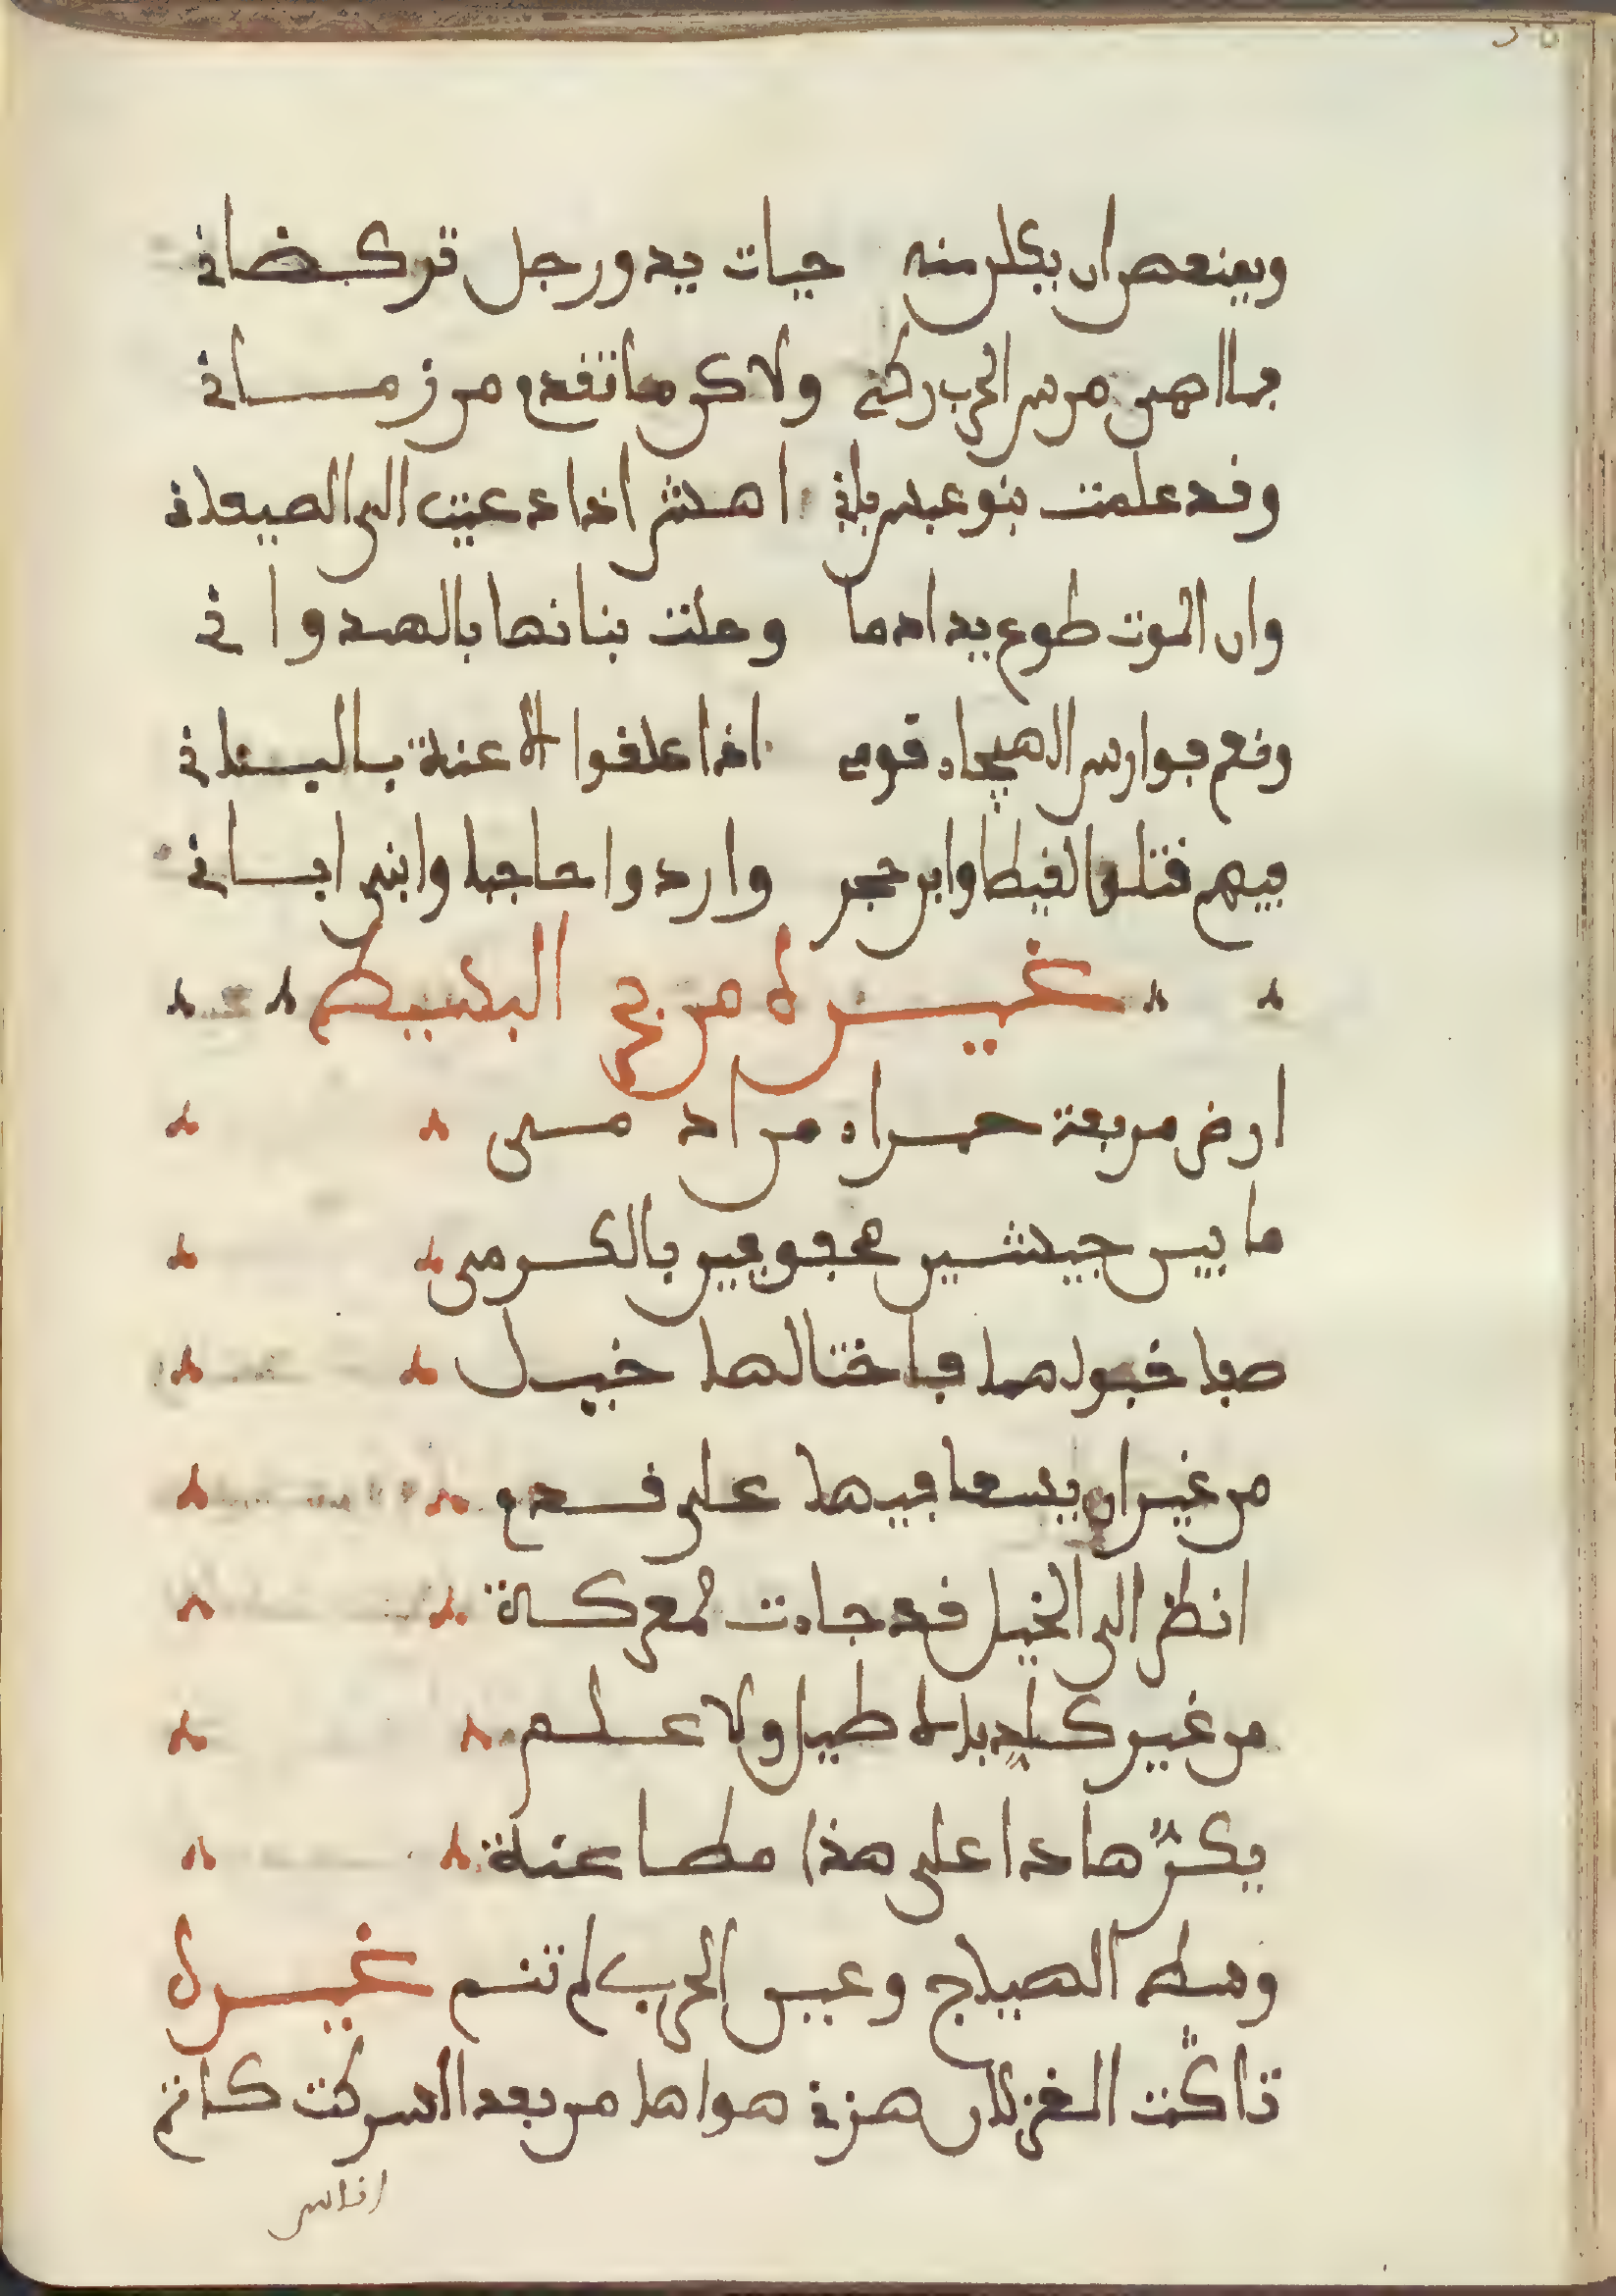 ويمنعهن ان ياكلن منه حيات يد ورجل تركضاني
فما اهمن من مر الحرب ركني ولاكن ما تقدم من زماني
وقد علمت بنو عبس باني اهش اذا دعيت الى الطعاني
وان الموت طوع يد اذا ما وصلت بنانها بالهندواني
ونعم فوارس الهيجاء قومي اذا علقوا الاعنة بالبناني
فيهم قتلوا لقيطا وابن حجر واردوا حاجبا وابنى اباني
غيره من بحر البسيط
ارض مربعة حمراء من ادمى
ما بين جيشين محفوفين بالكرمى
صفا خيولهما فاختالها خيل
من غير ان يسعا فيها على قدم
انظر الى الخيل قد جاءت بمعركة
من غير بلا طبل ولا علم
يكر هادا على هذا مطاعنة
وسط الصياح وعين الحرب لم تنم غيره
ناكت الغزلان هزني هواها من بعد السركت كاتم